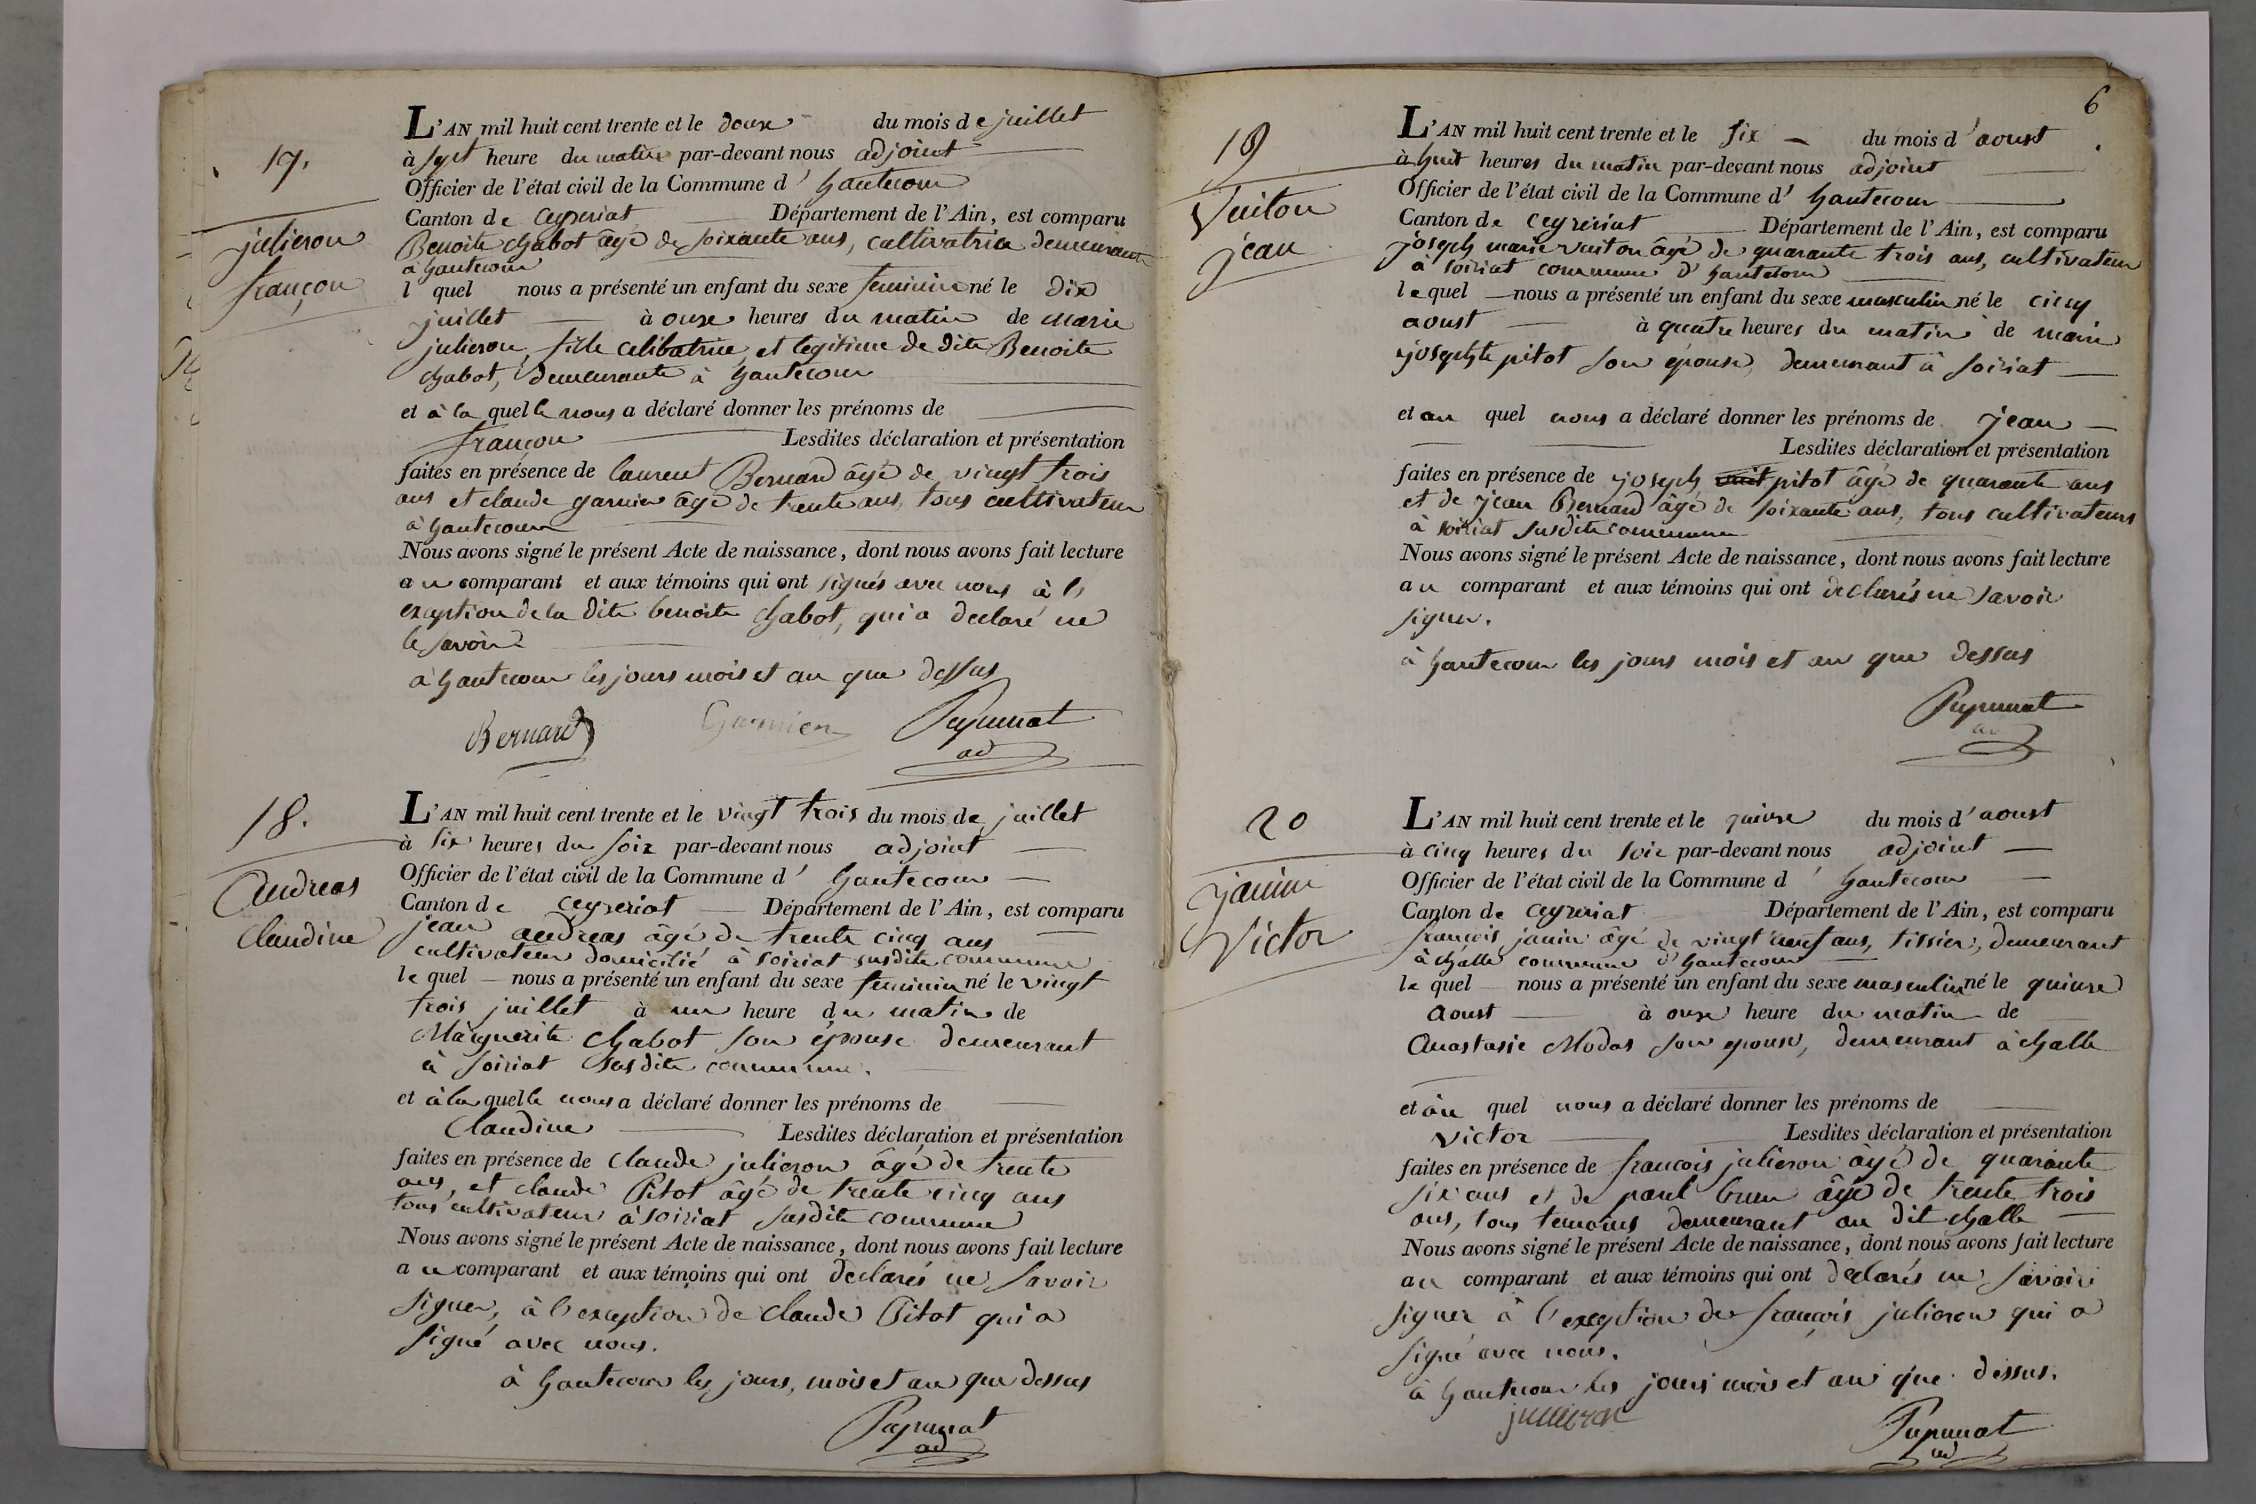 17.
julieron
françon
L'AN mil huit cent trente et le douze du mois de juillet
à sept heure du matin par-devant nous adjoint
Officier de l'état civil de la Commune d' hautecour
Canton de ceyzeriat Département de l'Ain, est comparu
Benoite chabot âgé de soixante ans, cultivatrice demeurant
à hautecour
l quel nous a présenté un enfant du sexe feminin né le dix
juillet à onze heures du matin de marie
julieron, fille celibatrice, et legitime de dite Benoite
chabot, demeurante à hautecour
et à la quelle nous a déclaré donner les prénoms de
françon Lesdites déclaration et présentation
faites en présence de laurent Bernard âgé de vingt trois
ans et claude garnier âgé de trente ans, tous cultivateur
à hautecour
Nous avons signé le présent Acte de naissance, dont nous avons fait lecture
au comparant et aux témoins qui ont signés avec nous à l'
exception de la dite benoite chabot, qui a declaré ne
le savoir
à hautecour les jours mois et an que dessus
Bernard Garnier
ad
18.
andreas
claudine
L'AN mil huit cent trente et le vingt trois du mois de juillet
à six heures du soir par-devant nous adjoint
Officier de l'état civil de la Commune d' hautecour
Canton de ceyzeriat Département de l'Ain, est comparu
jean andreas âgé de trente cinq ans
cultivateur domicilié à soiriat susdite commune
le quel nous a présenté un enfant du sexe feminin né le vingt
trois juillet à une heure du matin de
Marguerite chabot son épouse demeurant
à soiriat susdite commune.
et à la quelle nous a déclaré donner les prénoms de
claudine Lesdites déclaration et présentation
faites en présence de claude julieron âgé de trente
ans, et claude Pitot âgé de trente cinq ans
tous cultivateur à soiriat susdite commune
Nous avons signé le présent Acte de naissance, dont nous avons fait lecture
au comparant et aux témoins qui ont declarés ne savoir
signer, à l'exception de claude Pitot qui a
signé avec nous.
à hautecour les jours, mois et an que dessus
ad
6
19
Vuiton
jean
L'AN mil huit cent trente et le six du mois d'aoust
à huit heures du matin par-devant nous adjoint
Officier de l'état civil de la Commune d' hautecour
Canton de ceyzeriat Département de l'Ain, est comparu
joseph marie vuiton âgé de quarante trois ans, cultivateur
à soiriat commune d'hautecour
lequel nous a présenté un enfant du sexe masculin né le cinq
aoust à quatre heures du matin de marie
josephte pitot son épouse, demeurant à soiriat
et au quel nous a déclaré donner les prénoms de jean
Lesdites déclaration et présentation
faites en présence de joseph vuit pitot âgé de quarante ans
et de jean Bernard âgé de soixante ans, tous cultivateurs
à soiriat susdite commune
Nous avons signé le présent Acte de naissance, dont nous avons fait lecture
au comparant et aux témoins qui ont declarés ne savoir
signer.
à hautecour les jours mois et an que dessus
ad
20
janin
Victor
L'AN mil huit cent trente et le quinze du mois d'aoust
à cinq heures du soir par-devant nous adjoint
Officier de l'état civil de la Commune d' hautecour
Canton de ceyzeriat Département de l'Ain, est comparu
françois janin âgé de vingt neuf ans, tissier, demeurant
à challe commune d'hautecour
le quel nous a présenté un enfant du sexe masculin né le quinze
aoust à onze heure du matin de
anastasie Modas son epouse, demeurant à challe
et au quel nous a déclaré donner les prénoms de
victor Lesdites déclaration et présentation
faites en présence de françois julieron âgé de quarante
six ans et de paul brun âgé de trente trois
ans, tous temoins demeurant au dit challe
Nous avons signé le présent Acte de naissance, dont nous avons fait lecture
au comparant et aux témoins qui ont declarés ne savoir
signer à l'exception de françois julieron qui a
signé avec nous.
à hautecour les jours mois et an que dessus.
ad